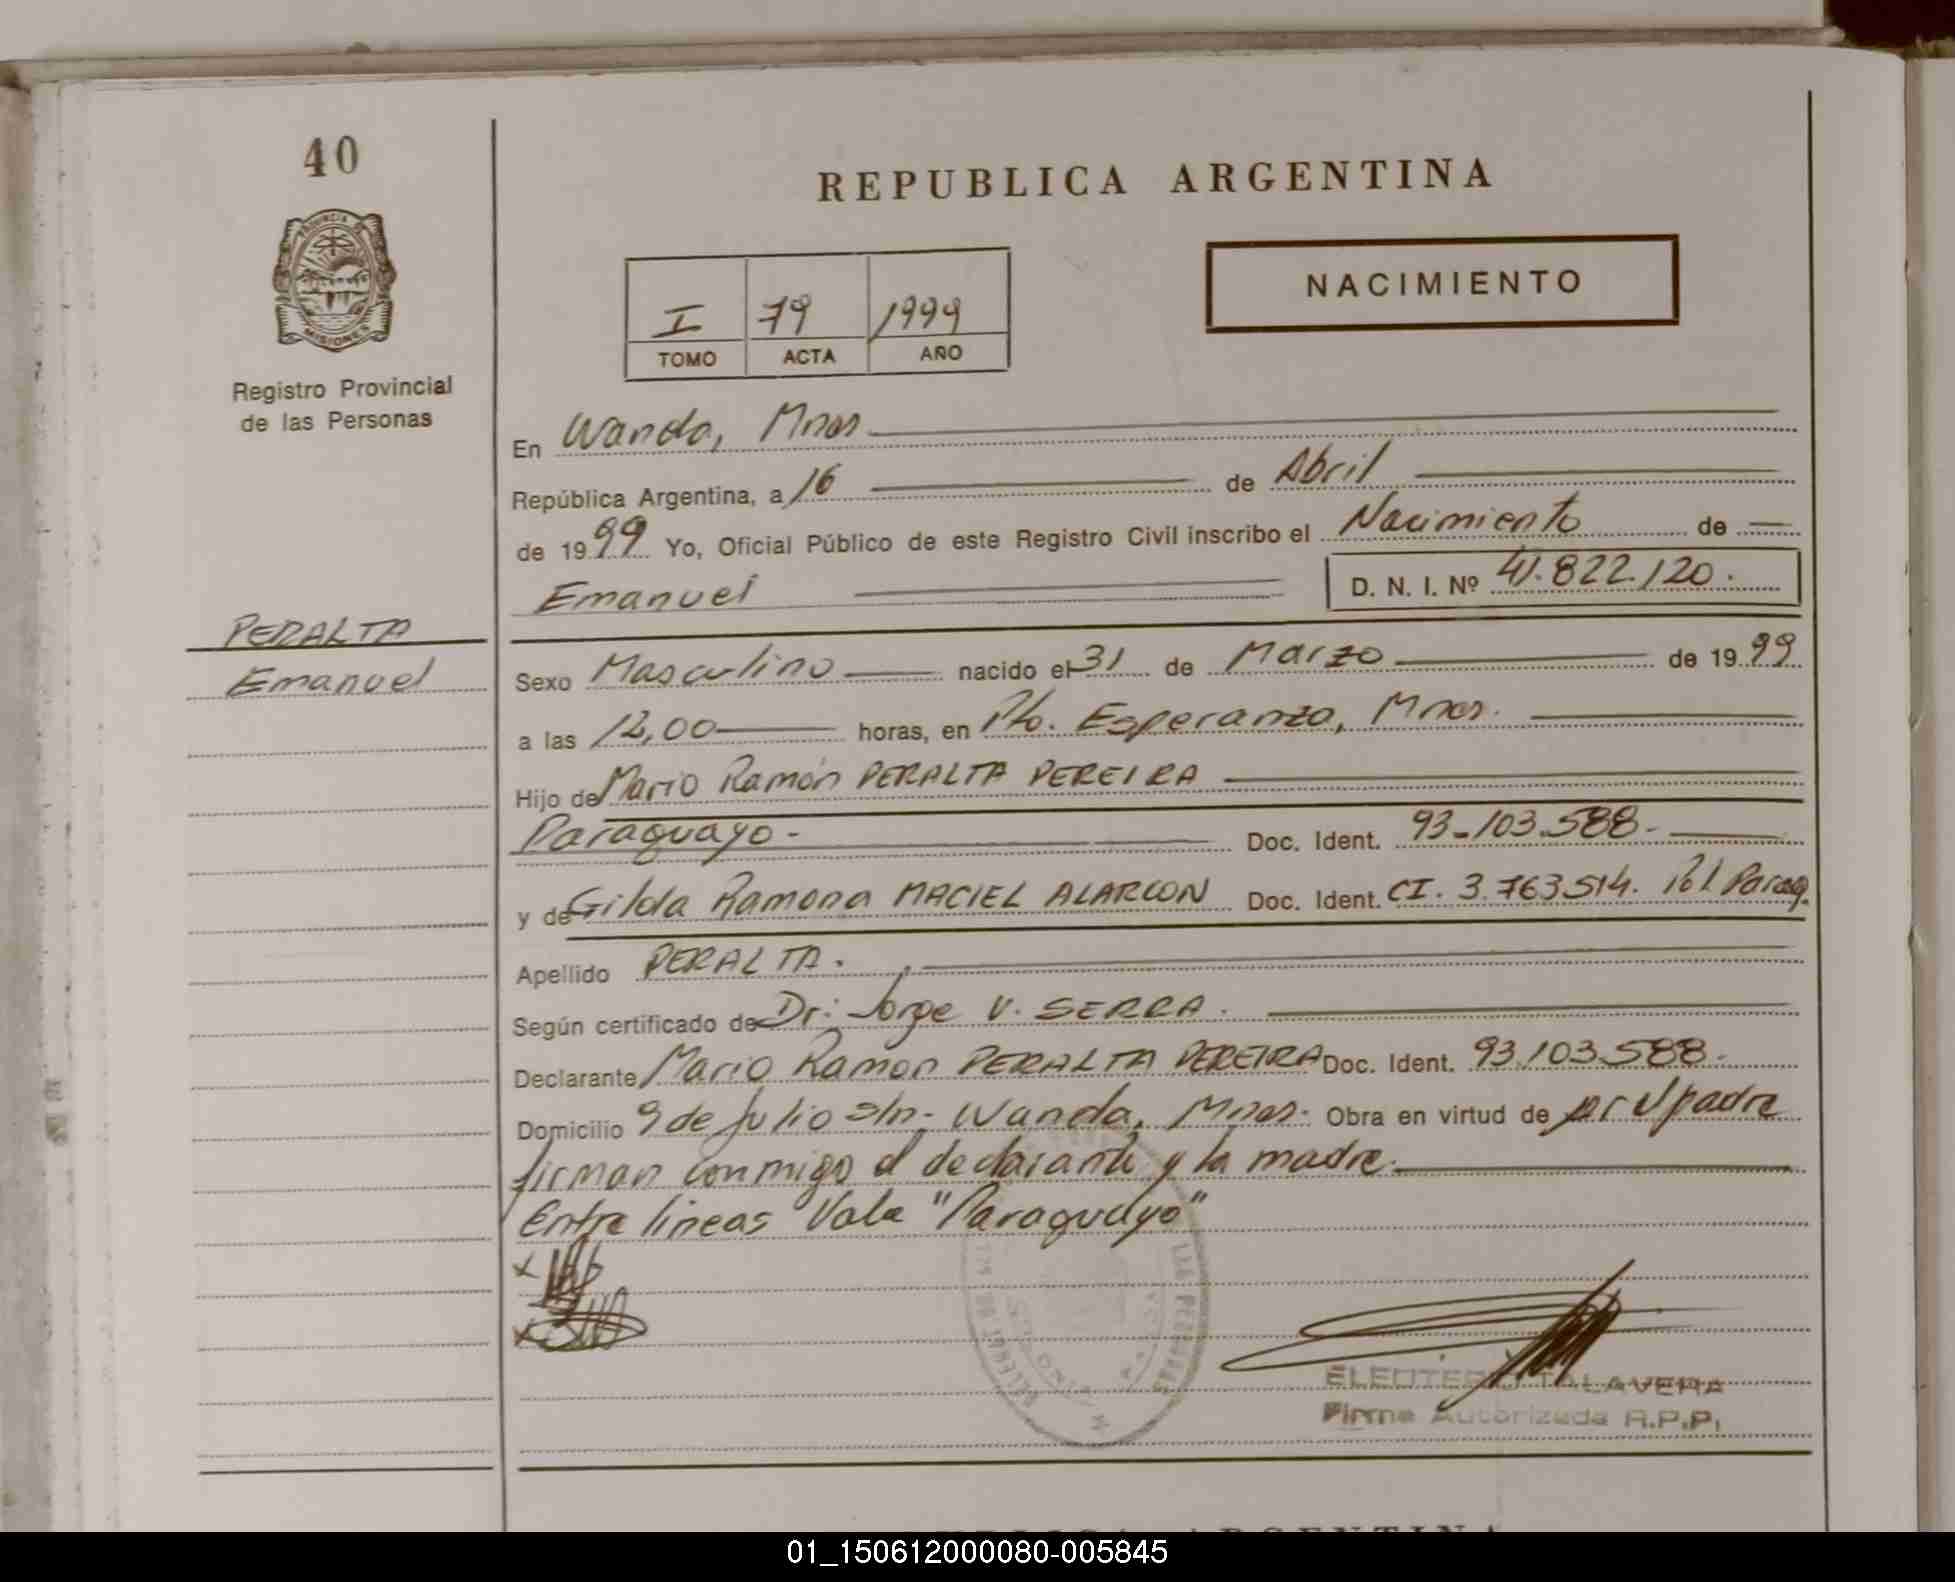 40
REPUBLICA ARGENTINA
PROVINCIA DE
MISIONES
NACIMIENTO
I 79 1999
TOMO ACTA AÑO
Registro Provincial
de las Personas
En Wanda, Mnes
República Argentina, a 16 de Abril
de 1999 Yo, Oficial Público de este Registro Civil inscribo el Nacimiento de
Emanuel D. N. I. Nº 41.822.120.
PERALTA
Emanuel
Sexo Masculino nacido el 31 de Marzo de 1999
a las 12,00 horas, en Pto. Esperanza, Mnes.
Hijo de Mario Ramón PERALTA PEREIRA
Paraguayo - Doc. Ident. 93.103.588.-
y de Gilda Ramona MACIEL ALARCON Doc. Ident. CI. 3.763514. Pol Parag.
Apellido PERALTA.
Según certificado de Dr: Jorge V. SERRA.
Declarante Mario Ramon PERALTA PEREIRA Doc. Ident. 93.103.588.
Domicilio 9 de Julio s/n - Wanda, Mnes. Obra en virtud de padre
firman conmigo el declarante y la madre.
Entre lineas Vale "Paraguayo"
ELEUTERIO TALAVERA
Firma Autorizada R.P.P.
REPUBLICA ARGENTINA
01_150612000080-005845